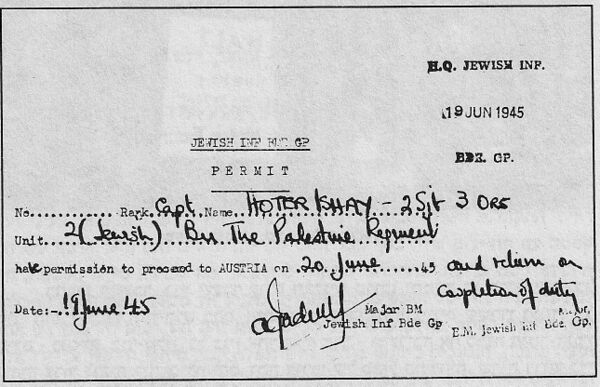 H.Q. JEWISH INF.
19 JUN 1945
BDE. GP.
JEWISH INF BDE GP
PERMIT
No............ Rank Capt Name HOTER ISHAY - 2 Sjt 3 ORs
Unit 2 (Jewish) Bn The Palestine Regiment
have permission to proceed to AUSTRIA on 20 June 45 and return on
completion of duty
Date:- 19 June 45
Major BM
Jewish Inf Bde Gp
Major,
B.M. Jewish Inf. Bde. Gp.